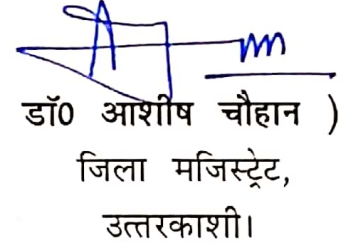 डॉ0 आशीष चौहान )
जिला मजिस्ट्रेट,
उत्तरकाशी।